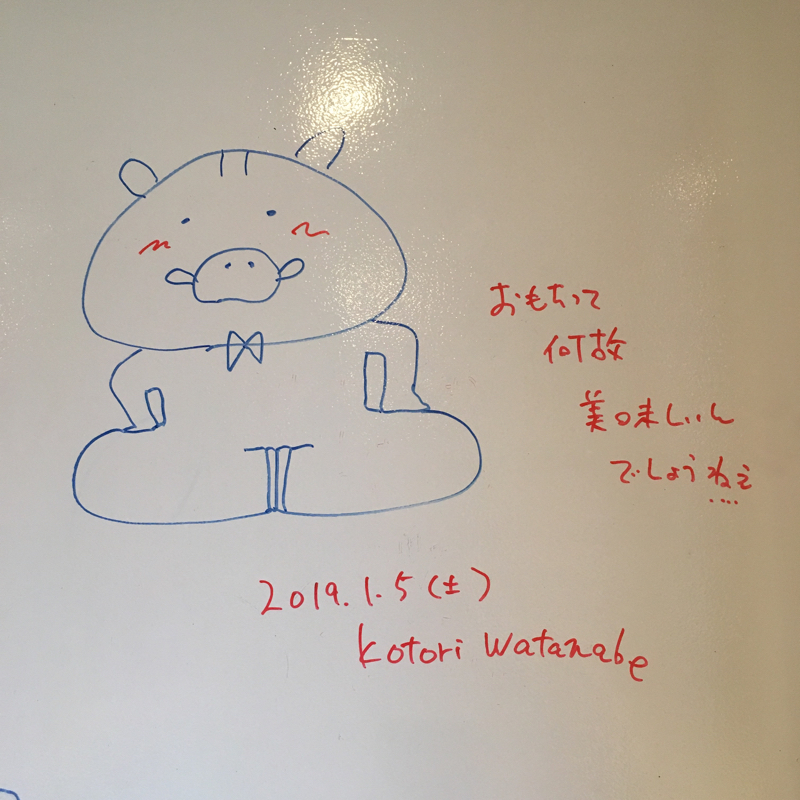 おもちって
何故
美味しいん
でしょうねぇ
....
2019.1.5(土)
Kotori Watanabe